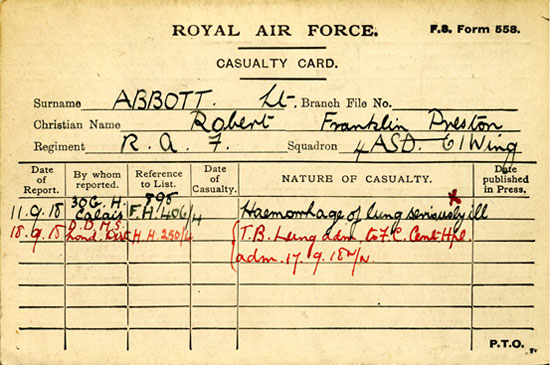 ROYAL AIR FORCE.
F.S. Form 558.
CASUALTY CARD.
Surname ABBOTT. Lt. Branch File No.
Christian Name Robert Franklin Preston
Regiment R. A. F. Squadron 4 ASD. 61 Wing
Date of Report. By whom reported. Reference to List. Date of Casualty. NATURE OF CASUALTY. Date published in Press.
11.9.18 30 G. H. Calais 898 F. H/406/4 Haemorrhage of lung seriously ill
18.9.18 D.D.M.S. Lond. Dist H. H. 250/4 T.B. Lung adm. to F.C. Cent Hpl.
adm. 17.9.18
P.T.O.